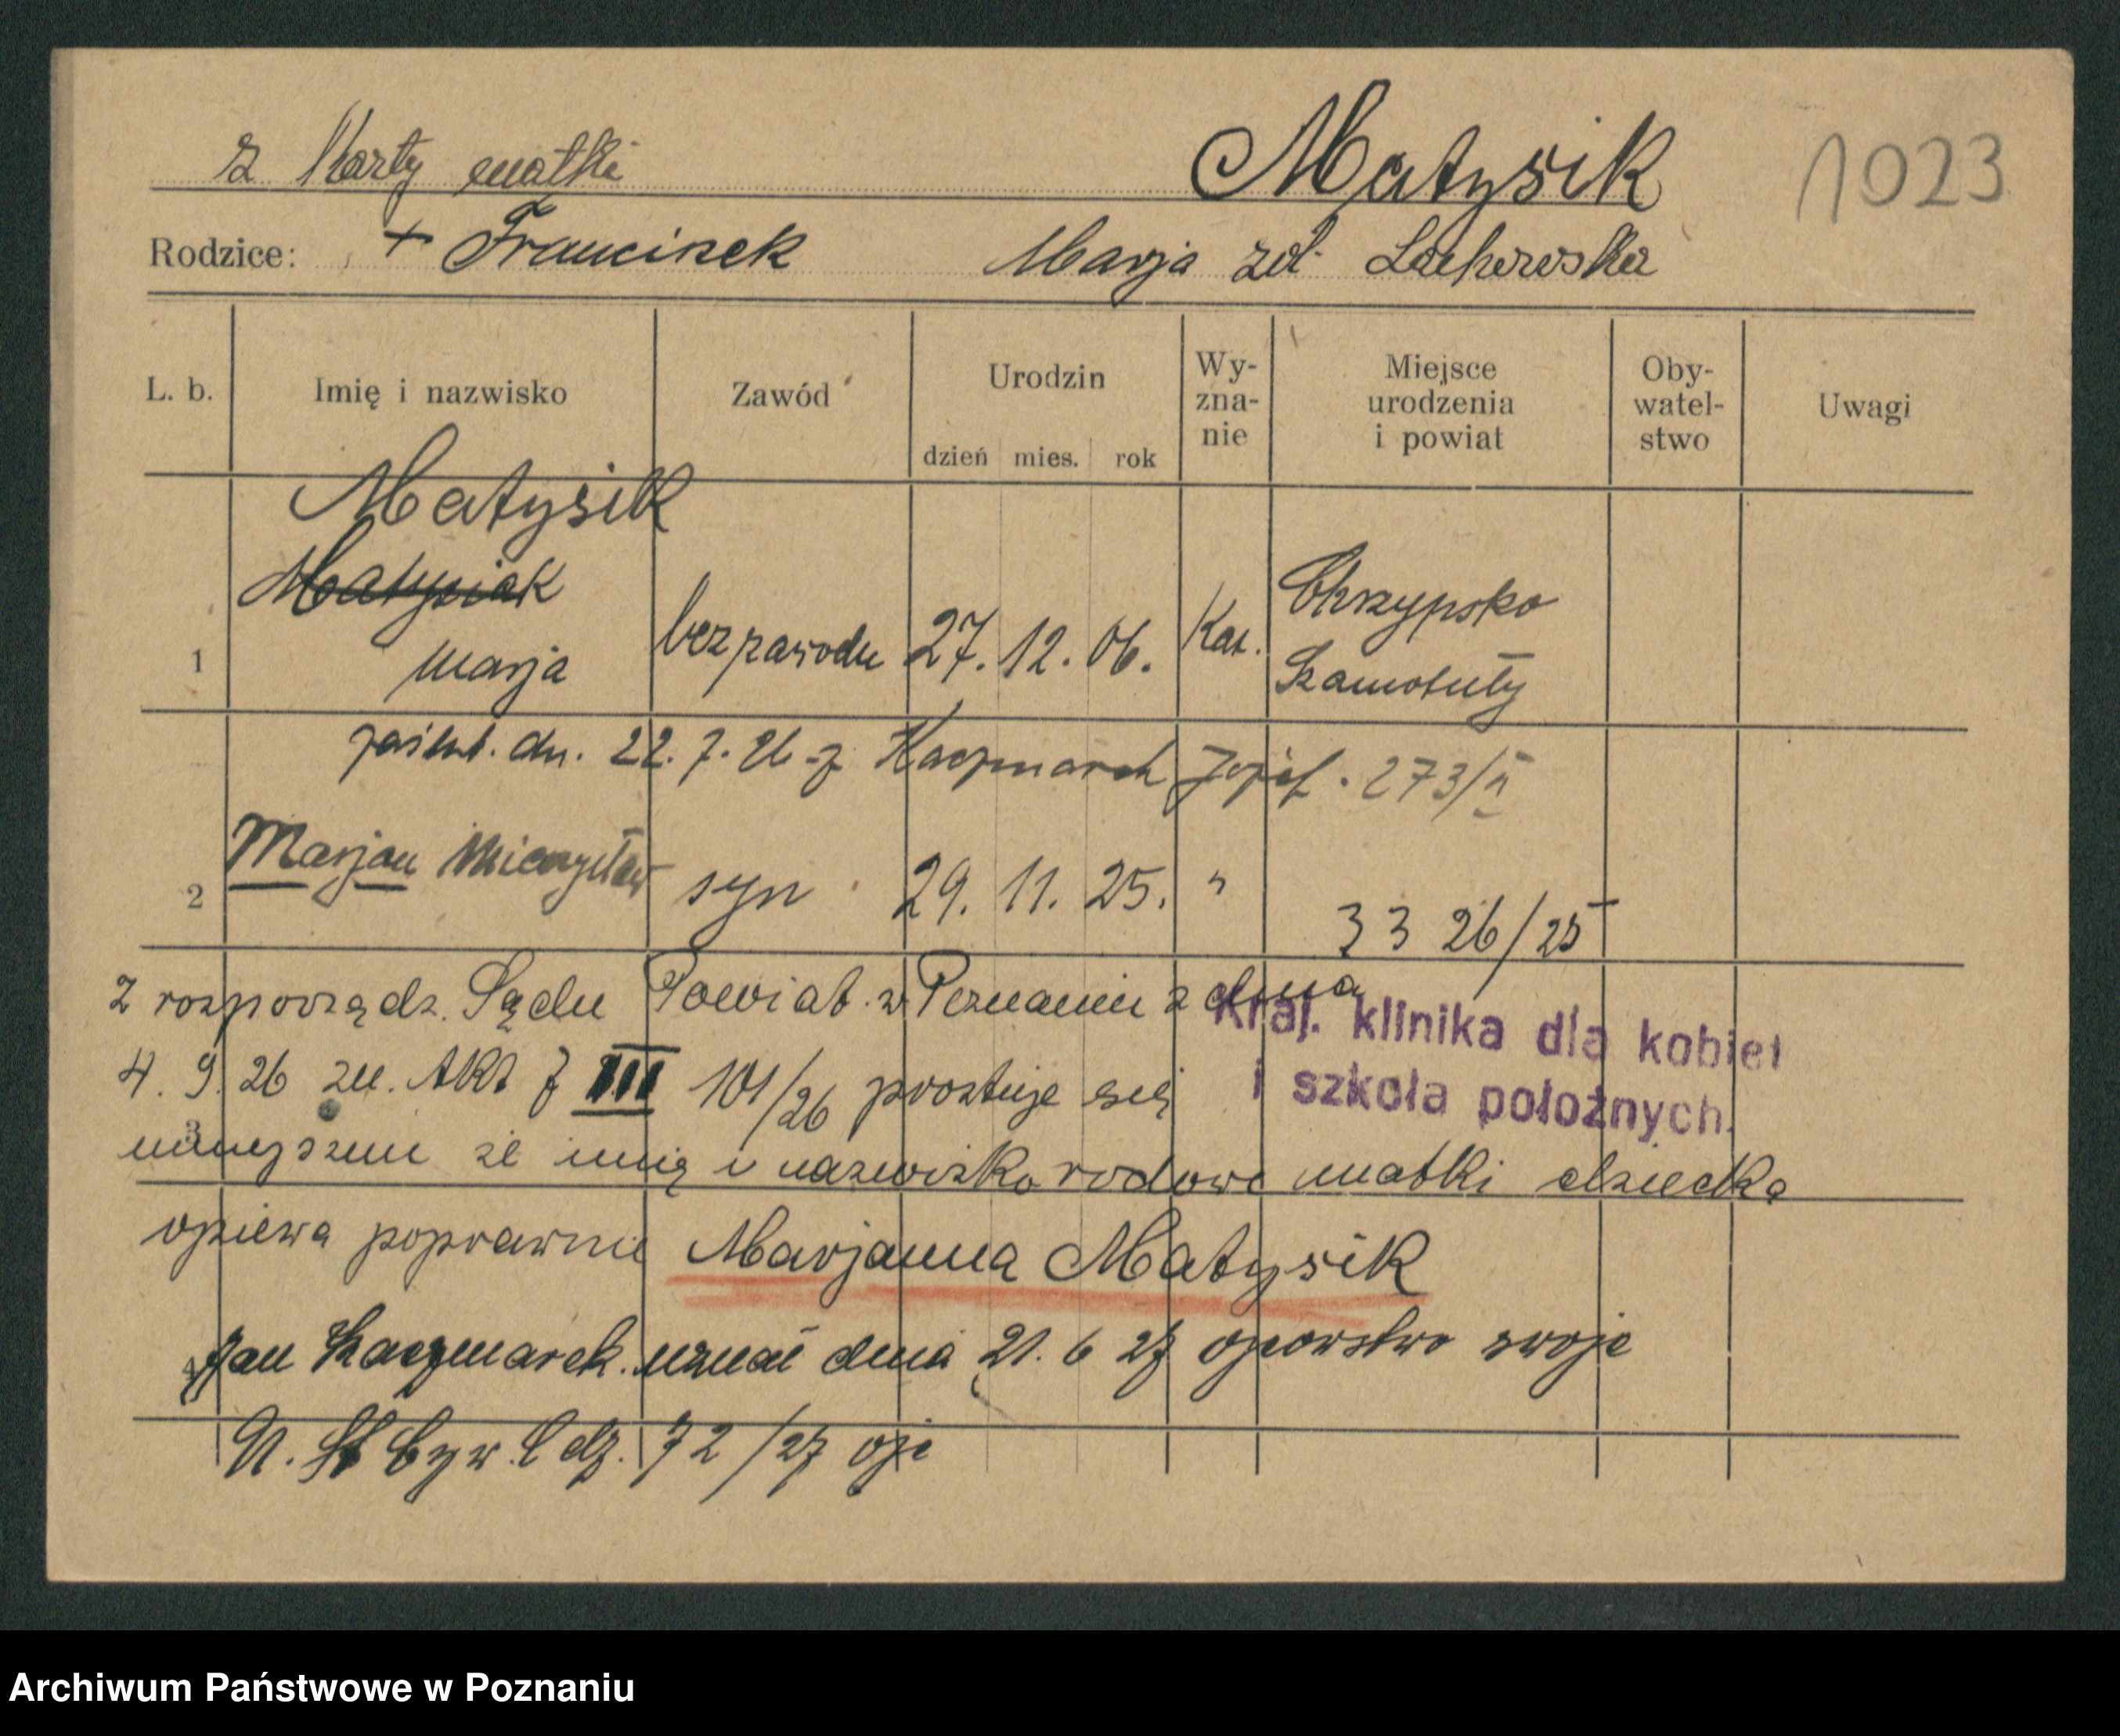 z Karty matki Matysik 1023
Rodzice: + Franciszek Marja zd. Lachowska
L. b. Imię i nazwisko Zawód Urodzin Wy-zna-nie Miejsce urodzenia i powiat Oby-watel-stwo Uwagi
dzień mies. rok
Matysik
Matysiak
1 Marja bez zawodu 27. 12. 06. Kat. Chrzypsko
Szamotuły
zaślub. dn. 22. 7. 26 z Kaczmarek Józef. 273/II
2 Marjan Mieczysław syn 29. 11. 25. " 3326/25
Z rozporządz. Sądu Powiat. w Poznaniu z dnia
Kraj. klinika dla kobiet
i szkoła położnych.
4. 9. 26 zn. Akt J III 101/26 prostuje się
3
niniejszem że imię i nazwisko rodowe matki dziecka
opiewa poprawnie Marjanna Matysik
4 Jan Kaczmarek uznał dnia 21. 6 27 ojcowstwo swoje
U. St Cyw. Ldz. 72/27
Archiwum Państwowe w Poznaniu